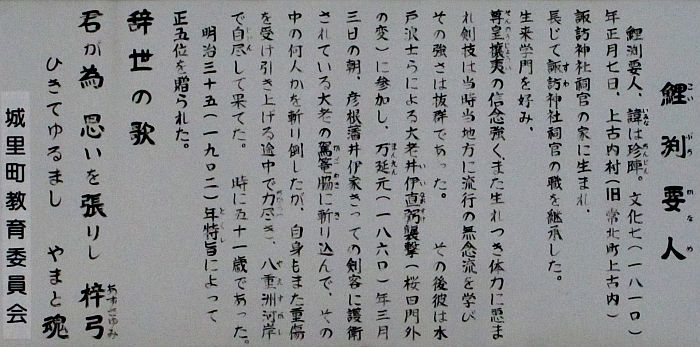 鯉渕要人
鯉渕要人、諱は珍陣。文化七(一八一〇)
年正月七日、上古内村(旧常北町上古内)
諏訪神社祠官の家に生まれ、
長じて諏訪神社祠官の職を継承した。
生来学問を好み、
尊皇攘夷の信念強く、また生れつき体力に恵ま
れ剣技は当時当地方に流行の無念流を学び
その強さは抜群であった。 その後彼は水
戸浪士らによる大老井伊直弼襲撃(桜田門外
の変)に参加し、万延元(一八六〇)年三月
三日の朝、彦根藩井伊家きっての剣客に護衛
されている大老の駕篭脇に斬り込んで、その
中の何人かを斬り倒したが、自身もまた重傷
を受け引き上げる途中で力尽き、八重洲河岸
で自尽して果てた。 時に五十一歳であった。
明治三十五(一九〇二)年特旨によって
正五位を贈られた。
辞世の歌
君が為 思いを張りし 梓弓
ひきてゆるまし やまと魂
城里町教育委員会